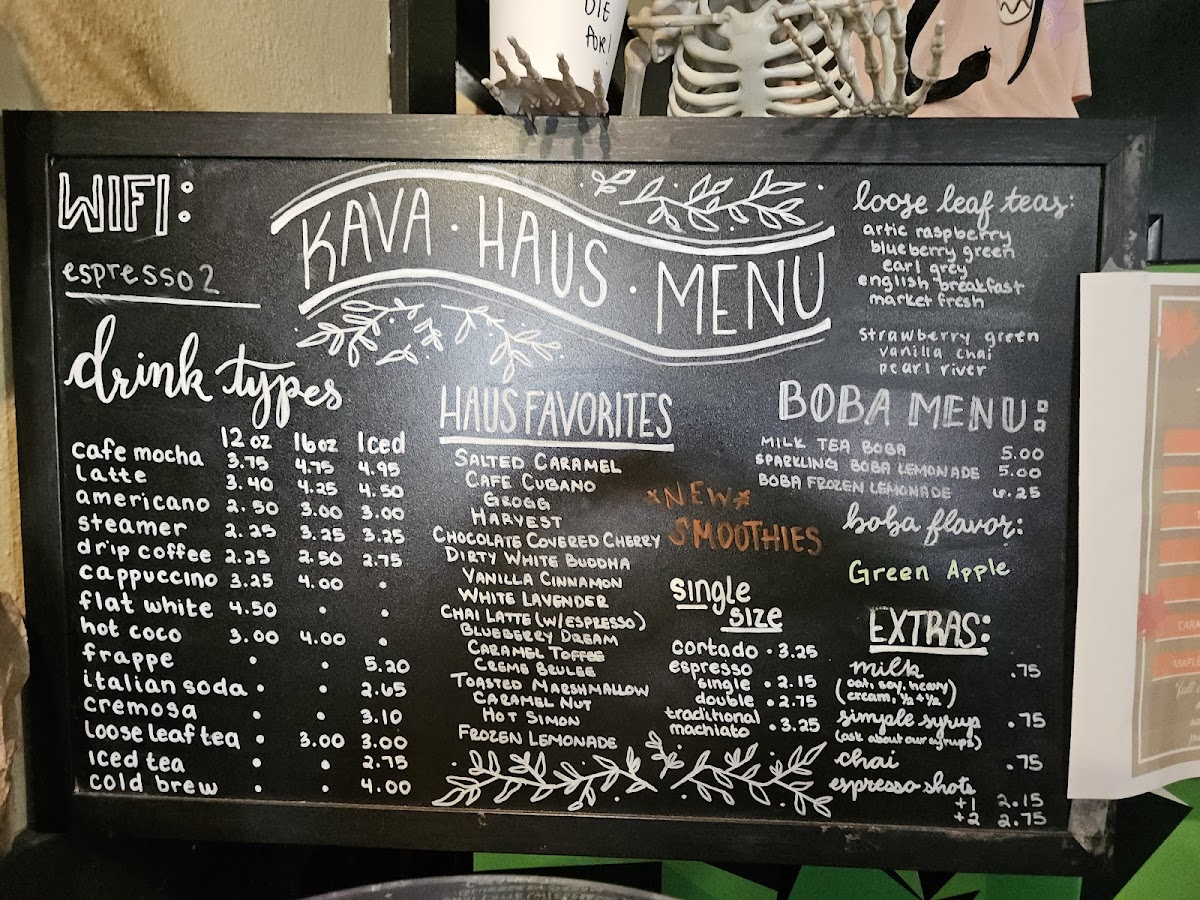 DIE
FOR!
WIFI:
espresso2
KAVA · HAUS · MENU
loose leaf teas:
artic raspberry
blueberry green
earl grey
english breakfast
market fresh
strawberry green
vanilla chai
pearl river
drink types
12 oz 16 oz Iced
cafe mocha 3.75 4.75 4.95
latte 3.40 4.25 4.50
americano 2.50 3.00 3.00
steamer 2.25 3.25 3.25
drip coffee 2.25 2.50 2.75
cappuccino 3.25 4.00 •
flat white 4.50 • •
hot coco 3.00 4.00 •
frappe • • 5.20
italian soda • • 2.65
cremosa • • 3.10
loose leaf tea • 3.00 3.00
Iced tea • • 2.75
cold brew • • 4.00
HAUS FAVORITES
SALTED CARAMEL
CAFE CUBANO
GROGG
HARVEST
CHOCOLATE COVERED CHERRY
DIRTY WHITE BUDDHA
VANILLA CINNAMON
WHITE LAVENDER
CHAI LATTE (W/ESPRESSO)
BLUEBERRY DREAM
CARAMEL TOFFEE
CREME BRULEE
TOASTED MARSHMALLOW
CARAMEL NUT
HOT SIMON
FROZEN LEMONADE
*NEW*
SMOOTHIES
single
size
cortado • 3.25
espresso
single • 2.15
double • 2.75
traditional
machiato • 3.25
BOBA MENU:
MILK TEA BOBA 5.00
SPARKLING BOBA LEMONADE 5.00
BOBA FROZEN LEMONADE 6.25
boba flavor:
Green Apple
EXTRAS:
milk .75
(oat, soy, heavy
cream, ½ + ½)
simple syrup .75
(ask about our syrups)
chai .75
espresso shots
+1 2.15
+2 2.75
CARA
MAPLE